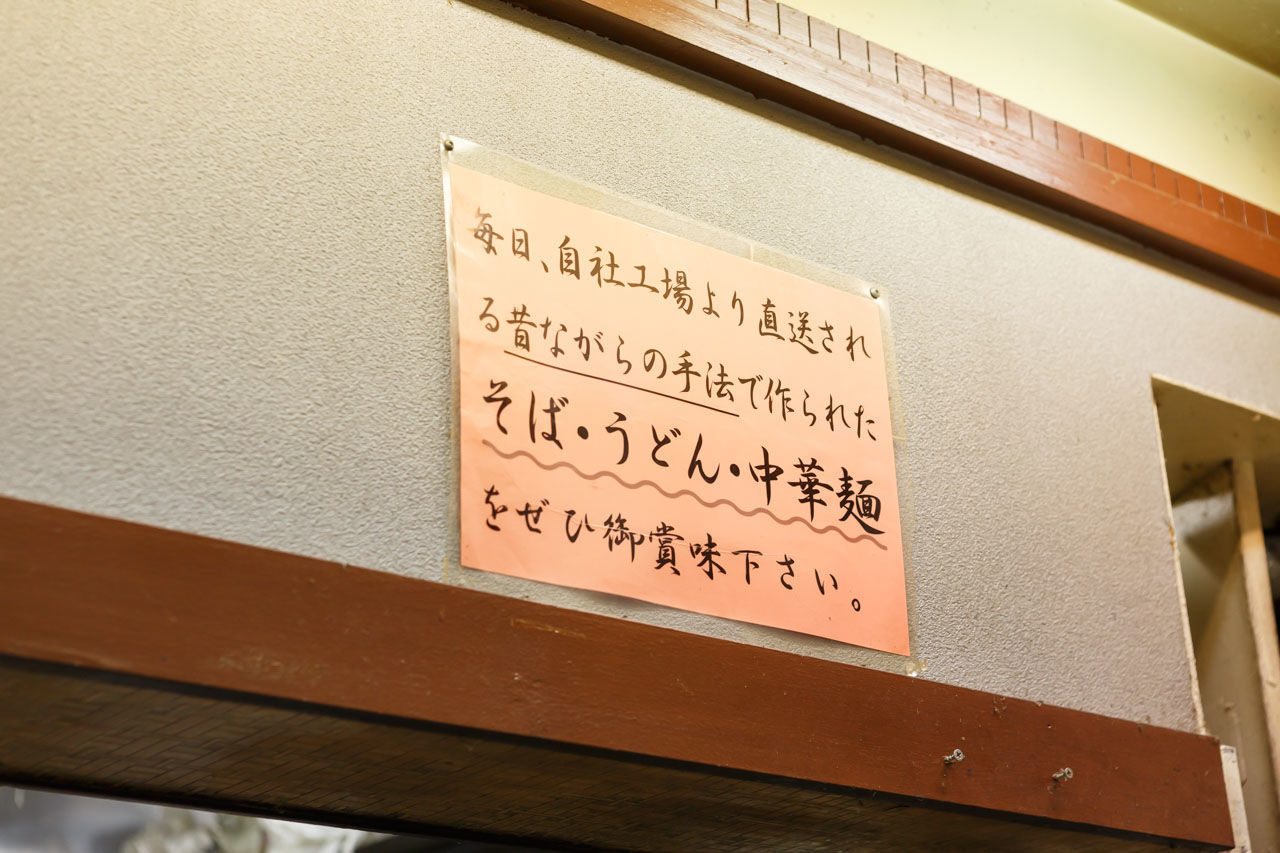 毎日、自社工場より直送され
る昔ながらの手法で作られた
そば・うどん・中華麺
をぜひ御賞味下さい。